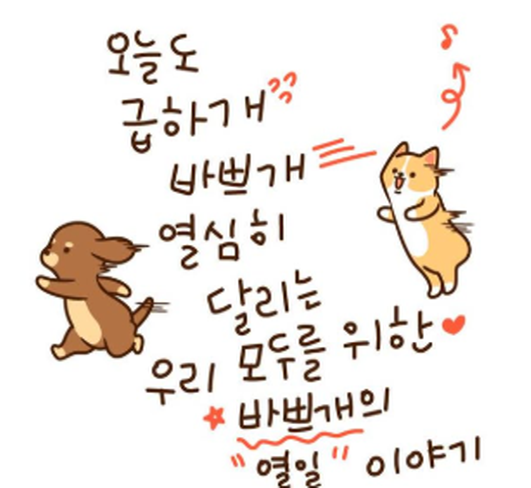 오늘도
급하개
바쁘개
열심히
달리는
우리 모두를 위한
바쁘개의
"열일" 이야기